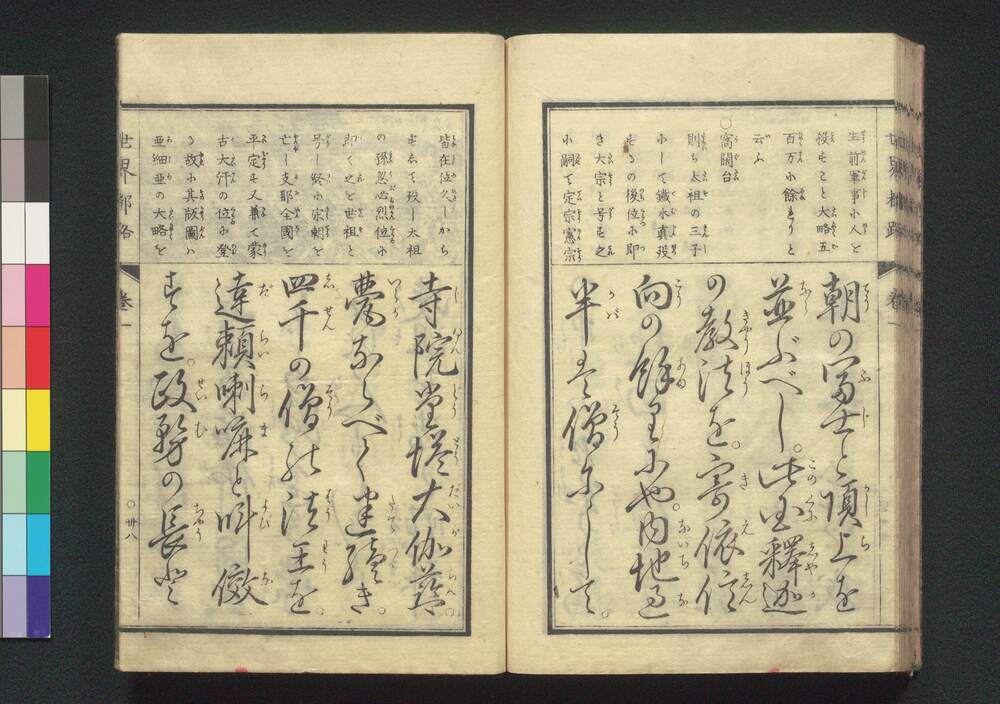 生前軍事小人を
役せること大略五
百万に餘れりと
云ふ
○窩闊台
則ち太祖の三子
にして鐵木真歿
するの後位に即
き大宗と号す之
に嗣て定宗憲宗
朝の冨士と頂上を
並ぶべし。此国釋迦
の教法を。寄依信
向の餘りにや。内地過
半は僧にして。
皆在位久しから
ずして歿し太祖
の孫忽必烈位に
即く之を世祖と
号し終に宋朝を
亡し支那全國を
平定す又兼て蒙
古大汗の位に登
る故に其版圖ハ
亜細亜の大略を
寺院堂塔大伽藍
甍ならべて建續き。
四千の僧の法王を。
達頼喇嘛と叫び做
すを。政務の長と
世界都路 巻一
○卅八